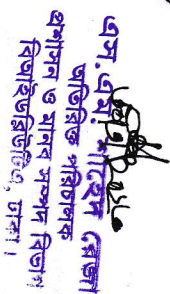 এস.এম. রেজা
অতিরিক্ত পরিচালক
প্রশাসন ও মানব সম্পদ বিভাগ
বিআইডব্লিউটিএ, ঢাকা।